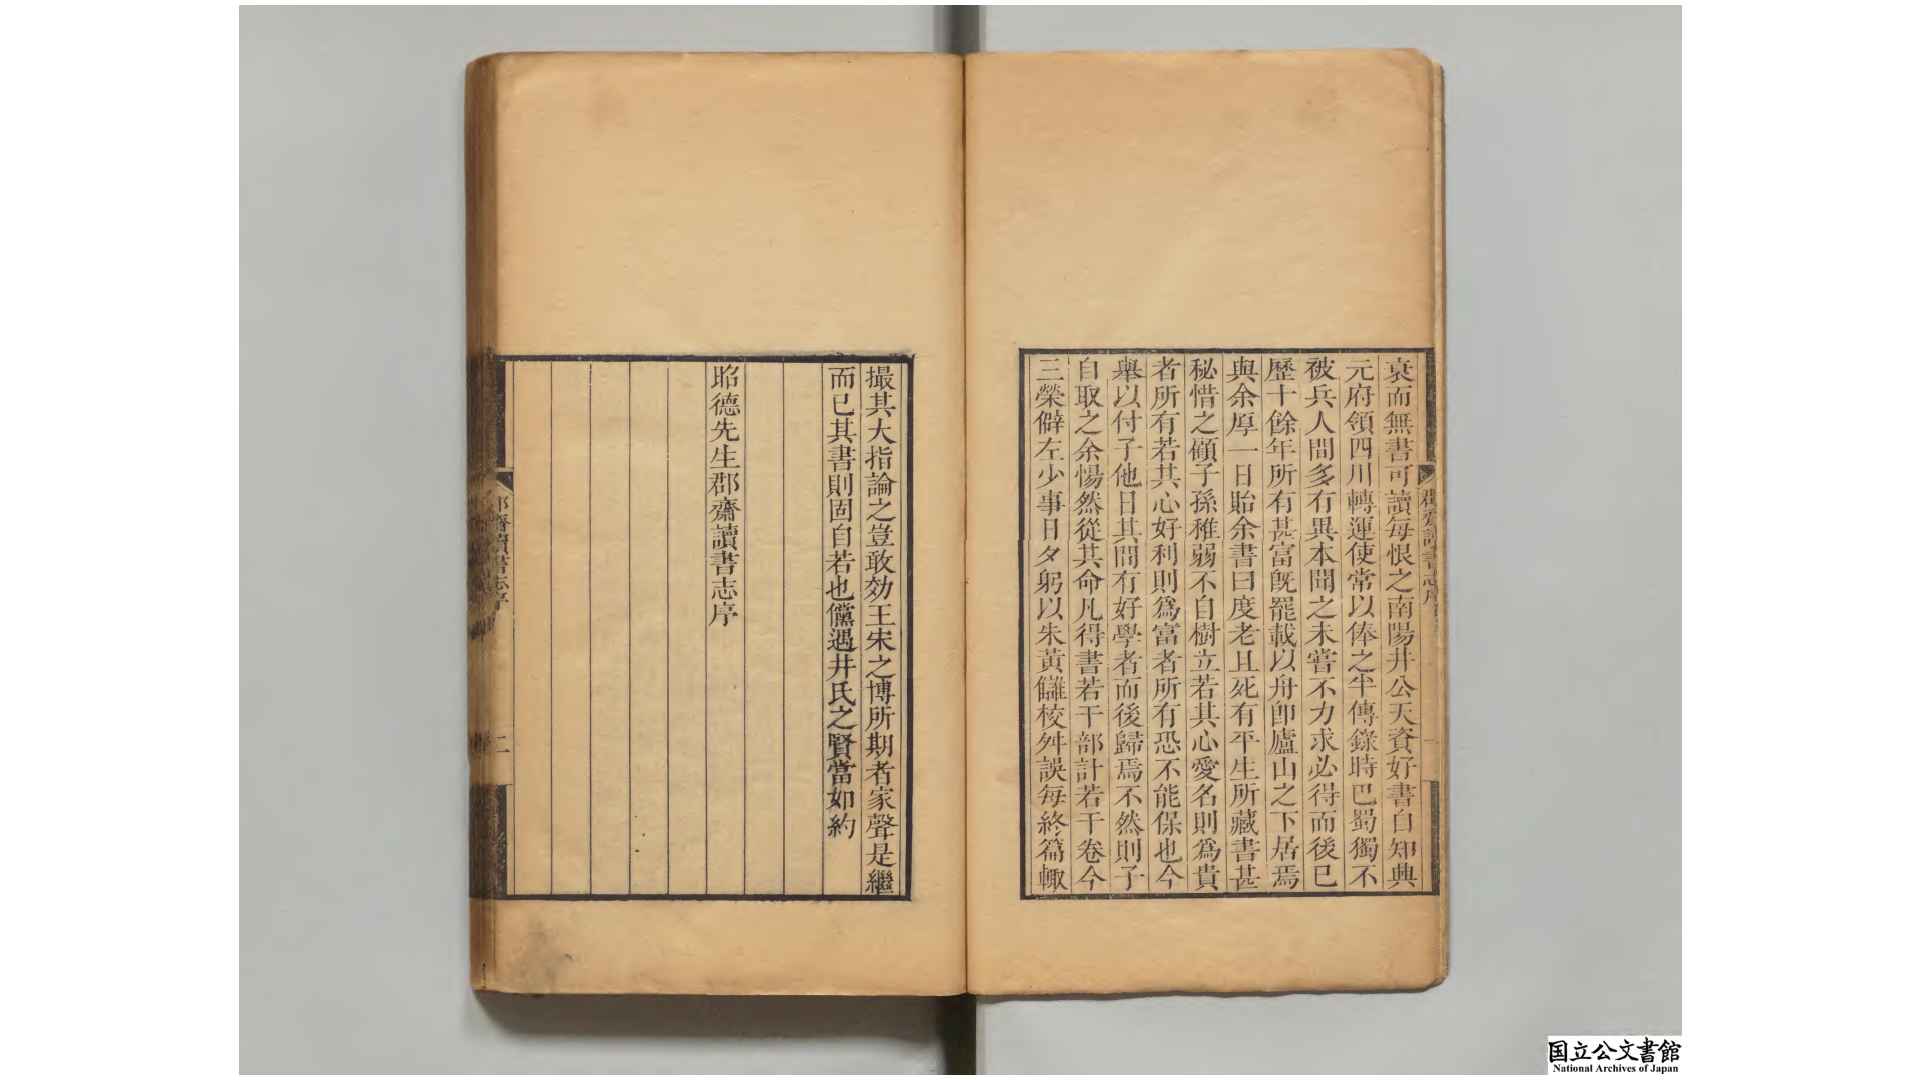 裒而無書可讀每恨之南陽井公天資好書自知興
元府領四川轉運使常以俸之半傳錄時巴蜀獨不
被兵人間多有異本聞之未甞不力求必得而後已
歷十餘年所有甚富旣罷載以舟卽廬山之下居焉
與余厚一日貽余書曰度老且死有平生所藏書甚
秘惜之顧子孫稚弱不自樹立若其心愛名則爲貴
者所有若其心好利則爲富者所有恐不能保也今
舉以付子他日其間有好學者而後歸焉不然則子
自取之余愓然從其命凡得書若干部計若干卷今
三榮僻左少事日夕躬以朱黃讎校舛誤每終篇輙
撮其大指論之豈敢効王宋之博所期者家聲是繼
而已其書則固自若也儻遇井氏之賢當如約
昭德先生郡齋讀書志序
郡齋讀書志序
二
国立公文書館
National Archives of Japan